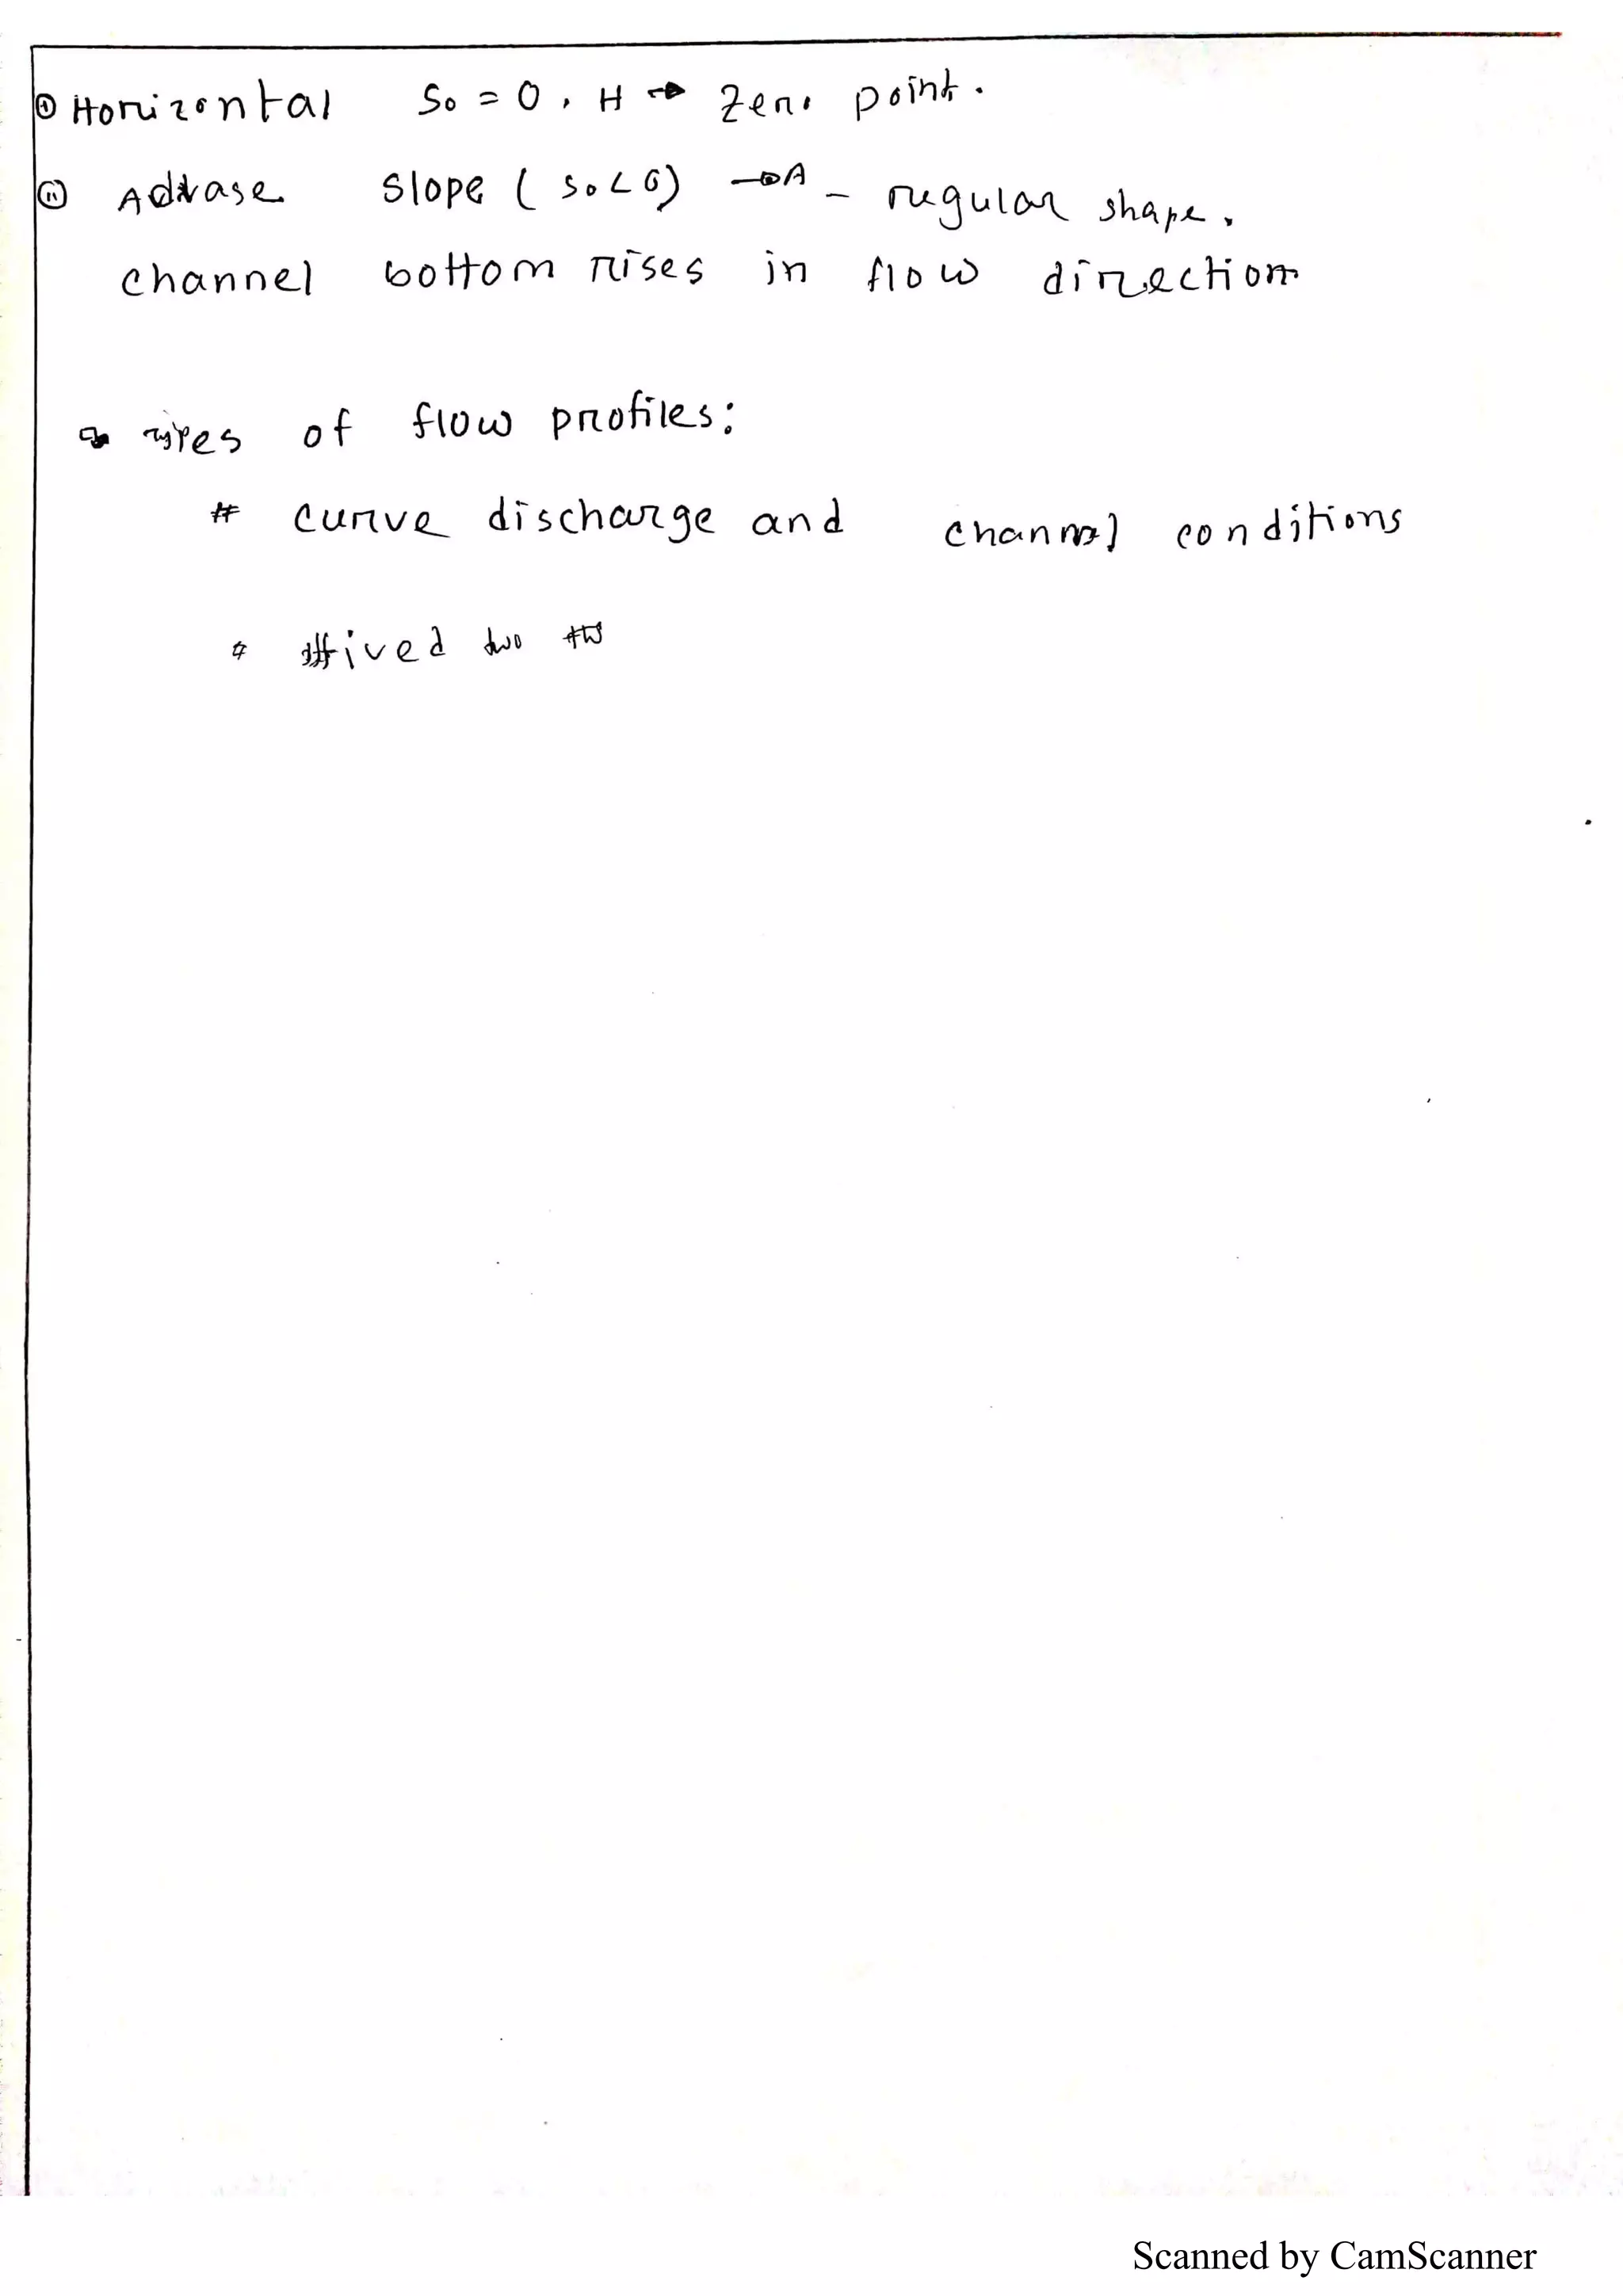 ① Horizontal So = 0, H → Zero point.
② Advase slope (So < 0) → A - regular shape.
channel bottom rises in flow direction
types of flow profiles:
# curve discharge and channel conditions
# two
Scanned by CamScanner